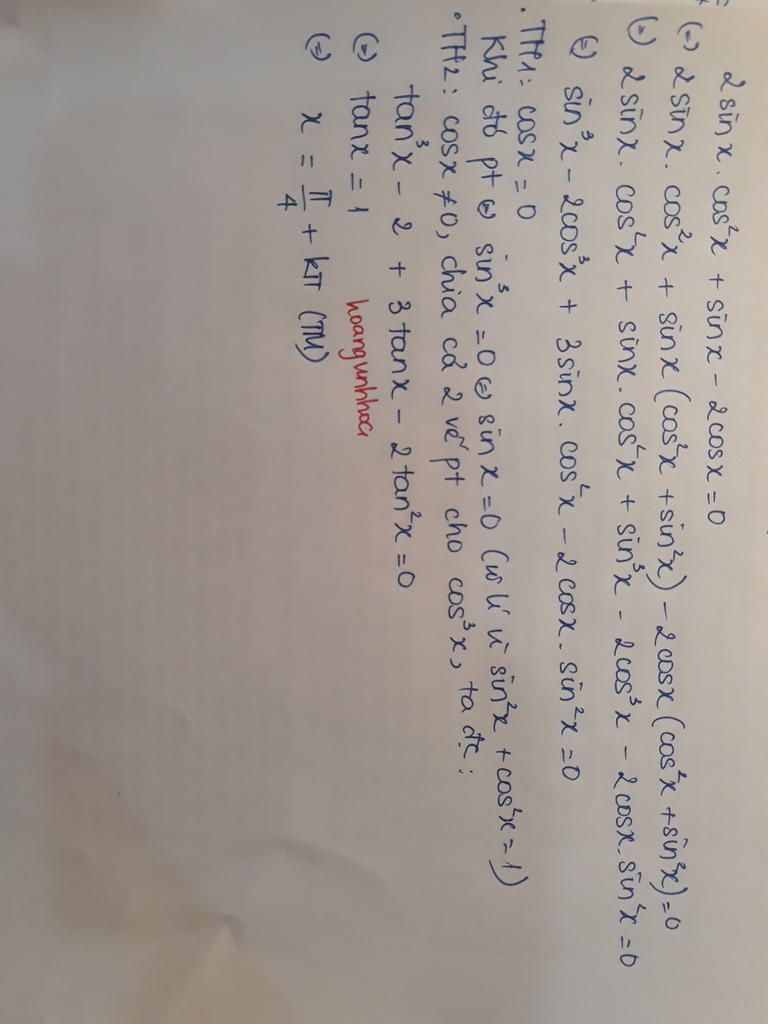 2 sinx . cos²x + sinx - 2cosx = 0
(=) 2 sinx . cos²x + sinx (cos²x + sin²x) - 2cosx (cos²x + sin²x) = 0
(=) 2 sinx . cos²x + sinx . cos²x + sin³x - 2cos³x - 2cosx . sin²x = 0
(=) sin³x - 2cos³x + 3sinx . cos²x - 2cosx . sin²x = 0
. TH1: cosx = 0
Khi đó pt (=) sin³x = 0 (=) sinx = 0 (vô lí vì sin²x + cos²x = 1)
. TH2: cosx ≠ 0, chia cả 2 vế pt cho cos³x, ta đc :
tan³x - 2 + 3tanx - 2tan²x = 0
(=) tanx = 1
hoangvnhhoa
(=) x = π/4 + kπ (TM)